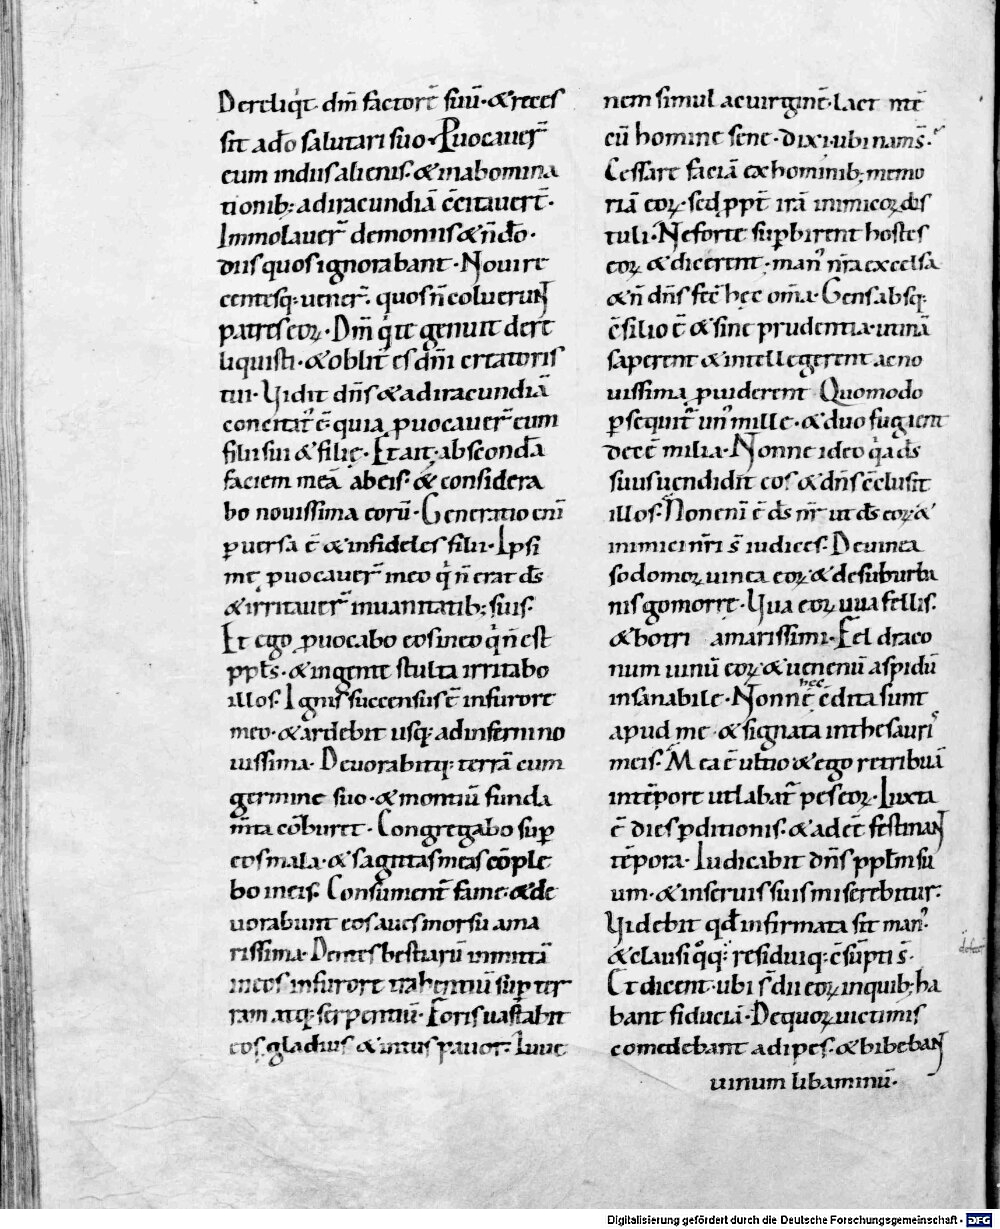 Dereliq̇t dm̄ factorē suū·&reces
sit ad̄o salutari suo·Puocauer̄
eum in diis alienis·&in abomina
tionib; ad iracundiā c̄citauer̄t·
Immolauer̄ demoniis &n̄ d̄o·
diis quos ignorabant·Noui re
centesq; uener̄· quos n̄ coluerunt
patres eoꝝ·Dm̄ q̇ te genuit dere
liquisti·&oblit̓ es dm̄i creatoris
tui·Uidit dn̄s &ad iracundiā
concitat̓ ē· quia ꝓuocauer̄ eum
filii sui &filię·Et ait·abscondā
faciem meā ab eis·&considera
bo nouissima eorū·Generatio enī
ꝑuersa ē &infideles filii·Ipsi
me ꝓuocauer̄ in eo q̇ n̄ erat d̄s
&irritauer̄ in uanitatib; suis·
Et ego ꝓuocabo eos in eo q̇ n̄ est
ppl̄s·&in gente stulta irritabo
illos·Ignis succensus ē in furore
meo·&ardebit usq; ad inferni no
uissima·Deuorabitq; terrā cum
germine suo·&montiū funda
m̄ta cōburet·Congregabo suꝑ
eos mala·&sagittas meas cōple
bo in eis·Consument̄ fame·&de
uorabunt eos aues morsu ama
rissima·Dentes bestiarū inmittā
in eos in furore trahentiū suꝑ ter
ram atq; serpentiū·Foris uastabit
eos gladius &intus pauor·Iuue
nem simul ac uirginē·lact̄entē
cū homine sene·dixi·ubi nam s̄·
Cessare faciā ex hominib; memo
riā eoꝝ·sed ꝓpt̄ irā inimicoꝝ dis
tuli·Ne forte suꝑbirent hostes
eoꝝ &dicerent·man̓ nr̄a excelsa
&n̄ dn̄s fec̄ hęc om̄a·Gens absq;
c̄silio ē &sine prudentia·utinā
saperent &intellegerent ac no
uissima ꝓuiderent Quomodo
ꝑsequit̄ un̓ mille·&duo fugient
decē milia·Nonne ideo q̇a d̄s
suus uendidit eos &dn̄s c̄clusit
illos·Non enī ē d̄s nr̄ ut d̄s eoꝝ &
inimici nr̄i s̄ iudices·De uinea
sodomoꝝ uinea eoꝝ &de suburba
nis gomorre·Uua eoꝝ uua fellis·
&botri amarissimi·Fel draco
num uinū eoꝝ &uenenū aspidū
insanabile·Nonne hęc c̄dita sunt
apud me·&signata in thesauris
meis·Mea ē ultio &ego retribuā
in tēpore ut labat̄ pes eoꝝ·Iuxta
ē dies ꝑditionis·&adeē festinant
tēpora·Iudicabit dn̄s ppl̄m su
um·&in seruis suis miserebitur·
Uidebit qd̄ infirmata sit man̓·
&clausi q̊q; residuiq; c̄sūpti s̄·
Et dicent·ubi s̄ dii eoꝝ in quib; ha
bant fiduciā·De quoꝝ uictimis
comedebant adipes·&bibebant
uinum libaminū·